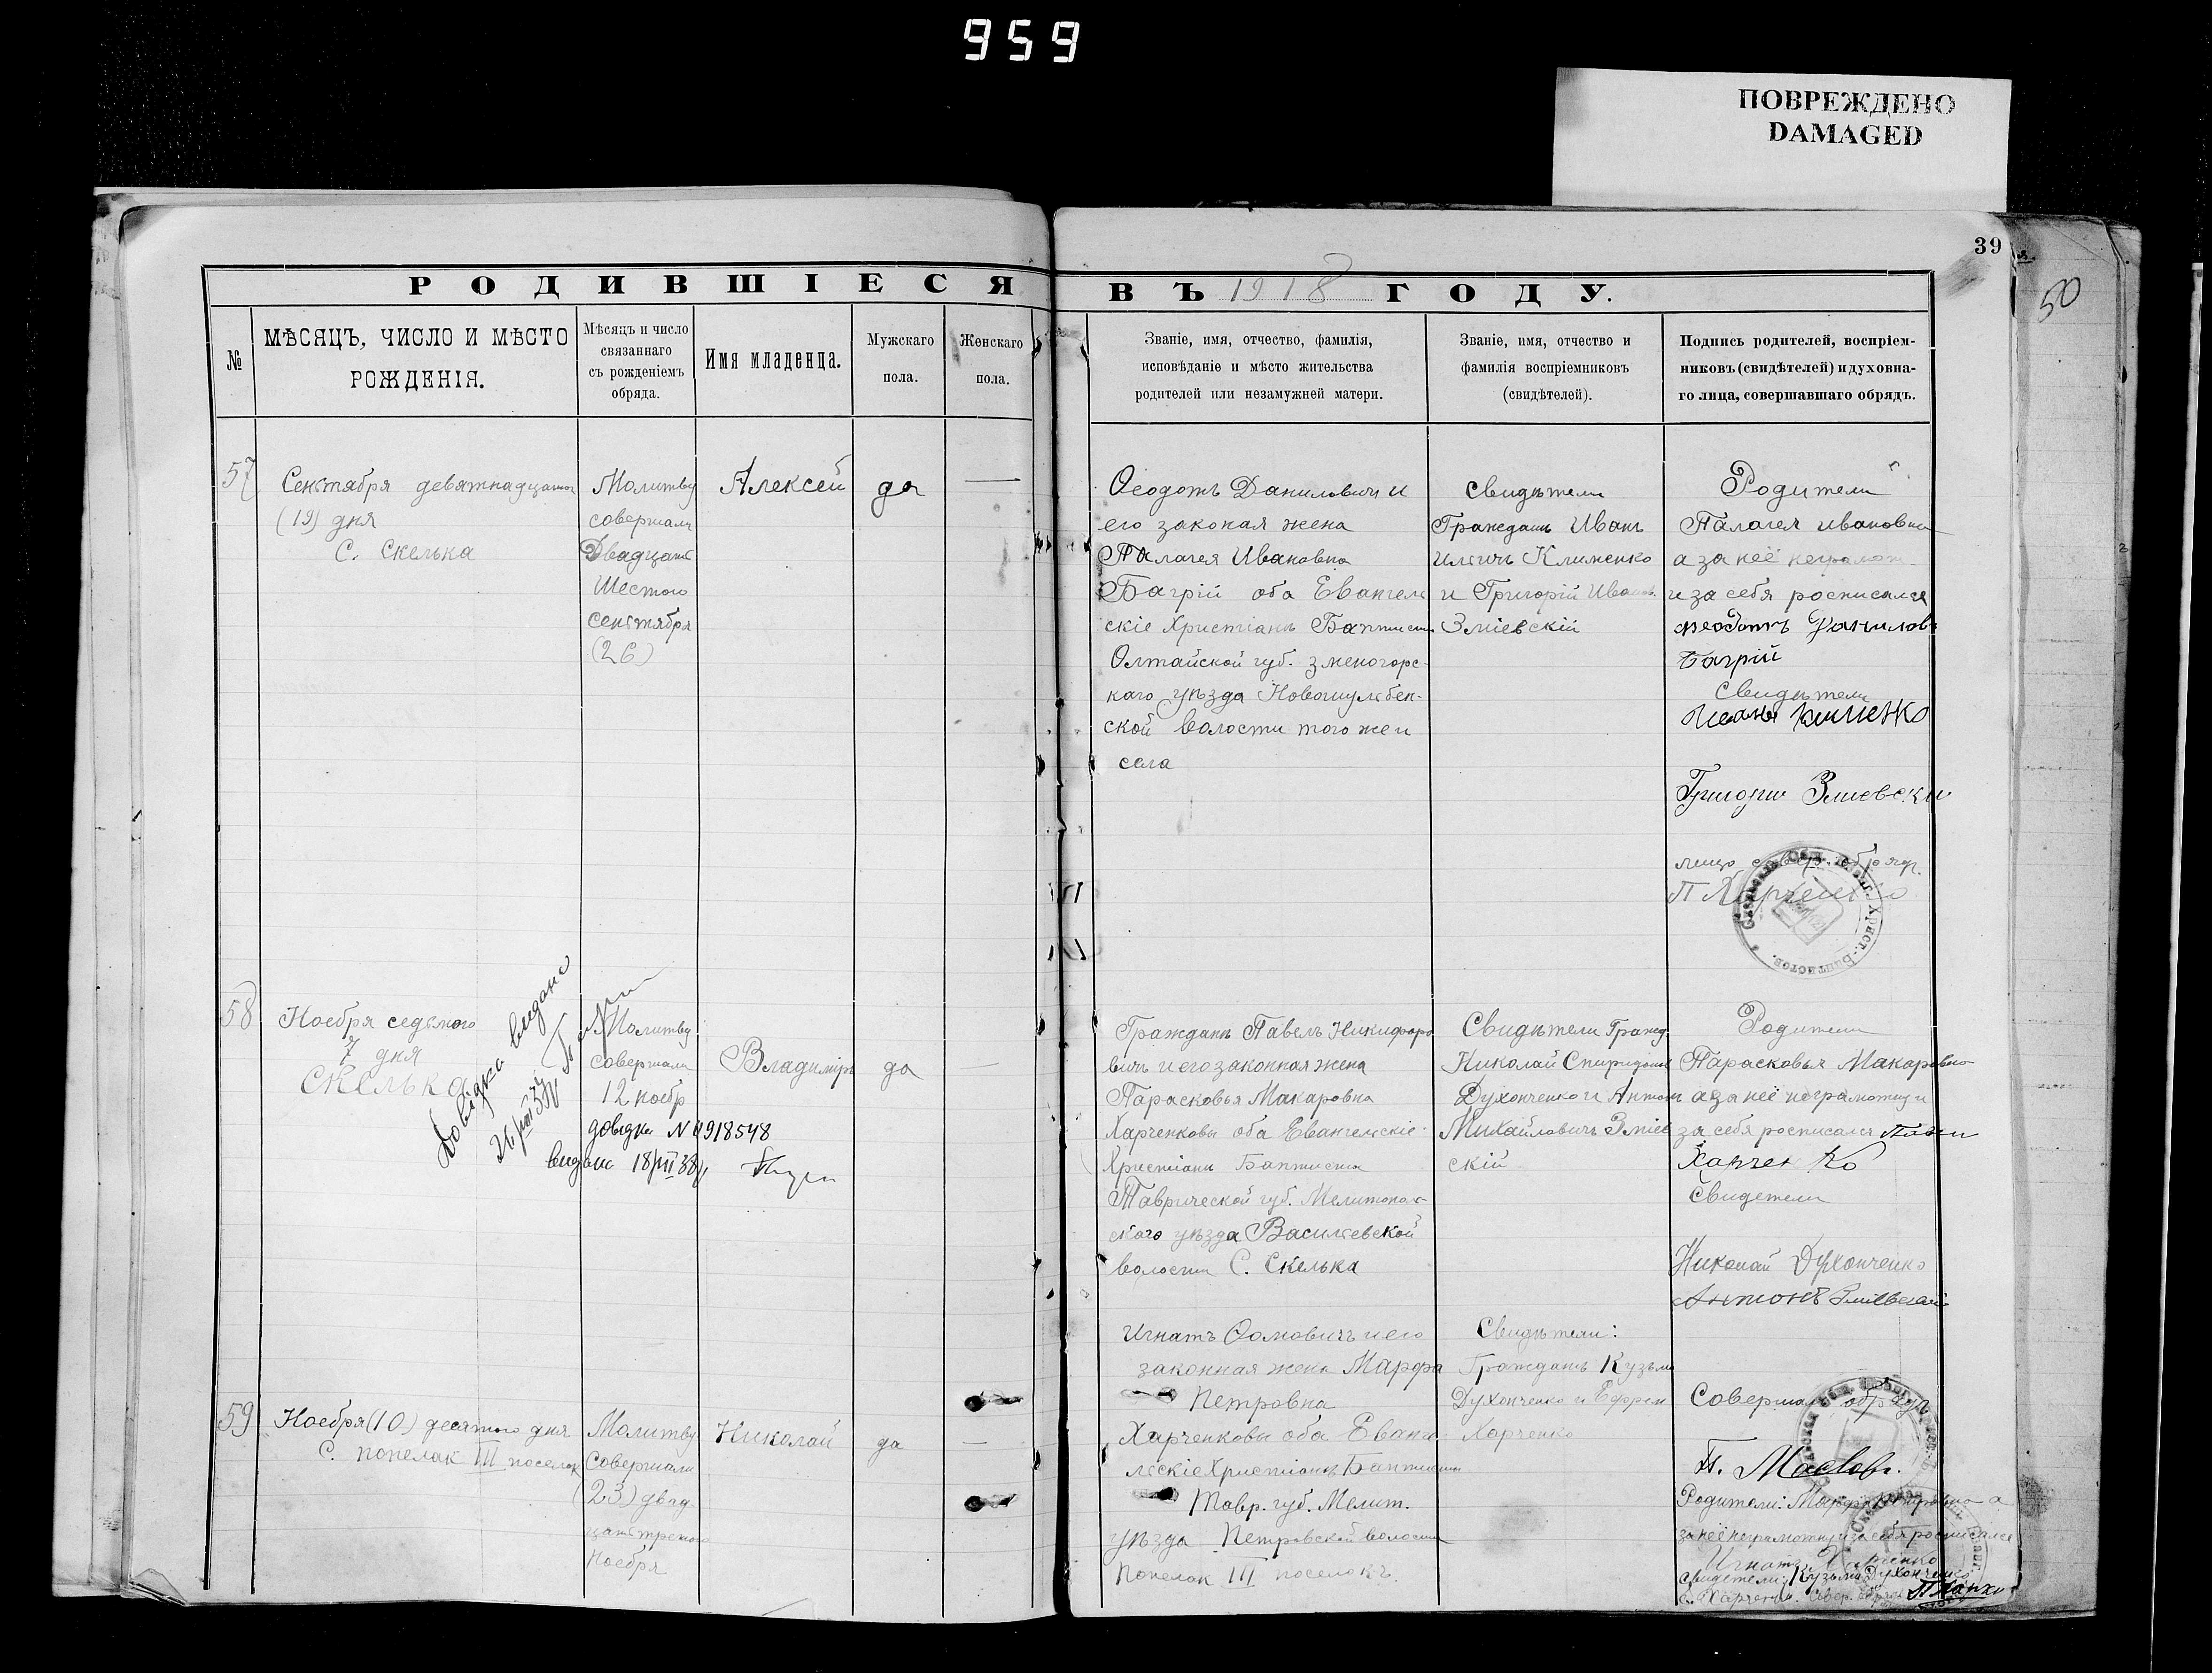 959
ПОВРЕЖДЕНО
DAMAGED
39
50
РОДИВШІЕСЯ ВЪ 1918 ГОДУ.
№
МѢСЯЦЪ, ЧИСЛО И МѢСТО
РОЖДЕНІЯ.
Мѣсяцъ и число
связаннаго
съ рожденіемъ
обряда.
Имя младенца.
Мужскаго
пола.
Женскаго
пола.
Званіе, имя, отчество, фамилія,
исповѣданіе и мѣсто жительства
родителей или незамужней матери.
Званіе, имя, отчество и
фамилія воспріемниковъ
(свидѣтелей).
Подпись родителей, воспріем-
никовъ (свидѣтелей) и духовна-
го лица, совершавшаго обрядъ.
57
Сентября девятнадцатого
(19) дня
С. Скелька
Молитву
совершали
Двадцать
Шестого
сентября
(26)
Алексей
да
—
Ѳеодотъ Даниловичъ и
его законая жена
Палагея Ивановна
Багрій оба Евангель
скіе Христіанъ Баптисты
Олтайской губ. Зменогорс-
каго уѣзда Новошулбен-
ской волости того же и
села
Свидѣтели
Гражданъ Иванъ
Иличъ Клименко
и Григорій Иванов.
Зміевскій
Родители
Палагея Ивановна
а за неё неграмот-
и за себя росписался
Ѳеодотъ Данилов
Багрій
Свидѣтели
Иванъ Клименко
Григорий Змиевски
лицо совер. обряд.
П Харченко
58
Ноебря седьмого
7 дня
Скелька
Довідка видана
Молитву
совершали
12 ноебр
довідка N 0918548
видана 18/III 38р
Владиміръ
да
—
Гражданъ Павелъ Никифоро
вичъ и его законная жена
Парасковья Макаровна
Харченковы оба Евангелскіе
Христіани Баптисты
Таврической губ. Мелитопол-
ского уѣзда Василевской
волости С. Скелька
Свидѣтели Гражд
Николай Спиридонов
Духонченко и Антон
Михайловичъ Зміев
скій
Родители
Парасковья Макаровна
а за неё неграмотну и
за себя росписался Павел
Харченко
Свидетели
Николай Духонченко
Антонъ Змиевский
Совершал обрядъ
П. Масловъ.
59
Ноебря (10) десятого дня
С. попелак III поселок
Молитву
Совершали
(23) двад
цать третього
Ноебря
Николай
да
—
Игнатъ Ѳомовичъ и его
законная жена Марфа
Петровна
Харченковы оба Еванге
лскіе Христіанъ Баптисты
Тавр. губ. Мелит.
уѣзда Петровской волости
Попелак III поселокъ.
Свидѣтели:
Гражданъ Кузьма
Духонченко и Ефрем
Харченко
Родители: Марфа Петровна а
за неё неграмотну и за себя росписался
Игнатъ Харченко
свидетели: Кузьма Духонченко
Е. Харченко. Совер. обряд